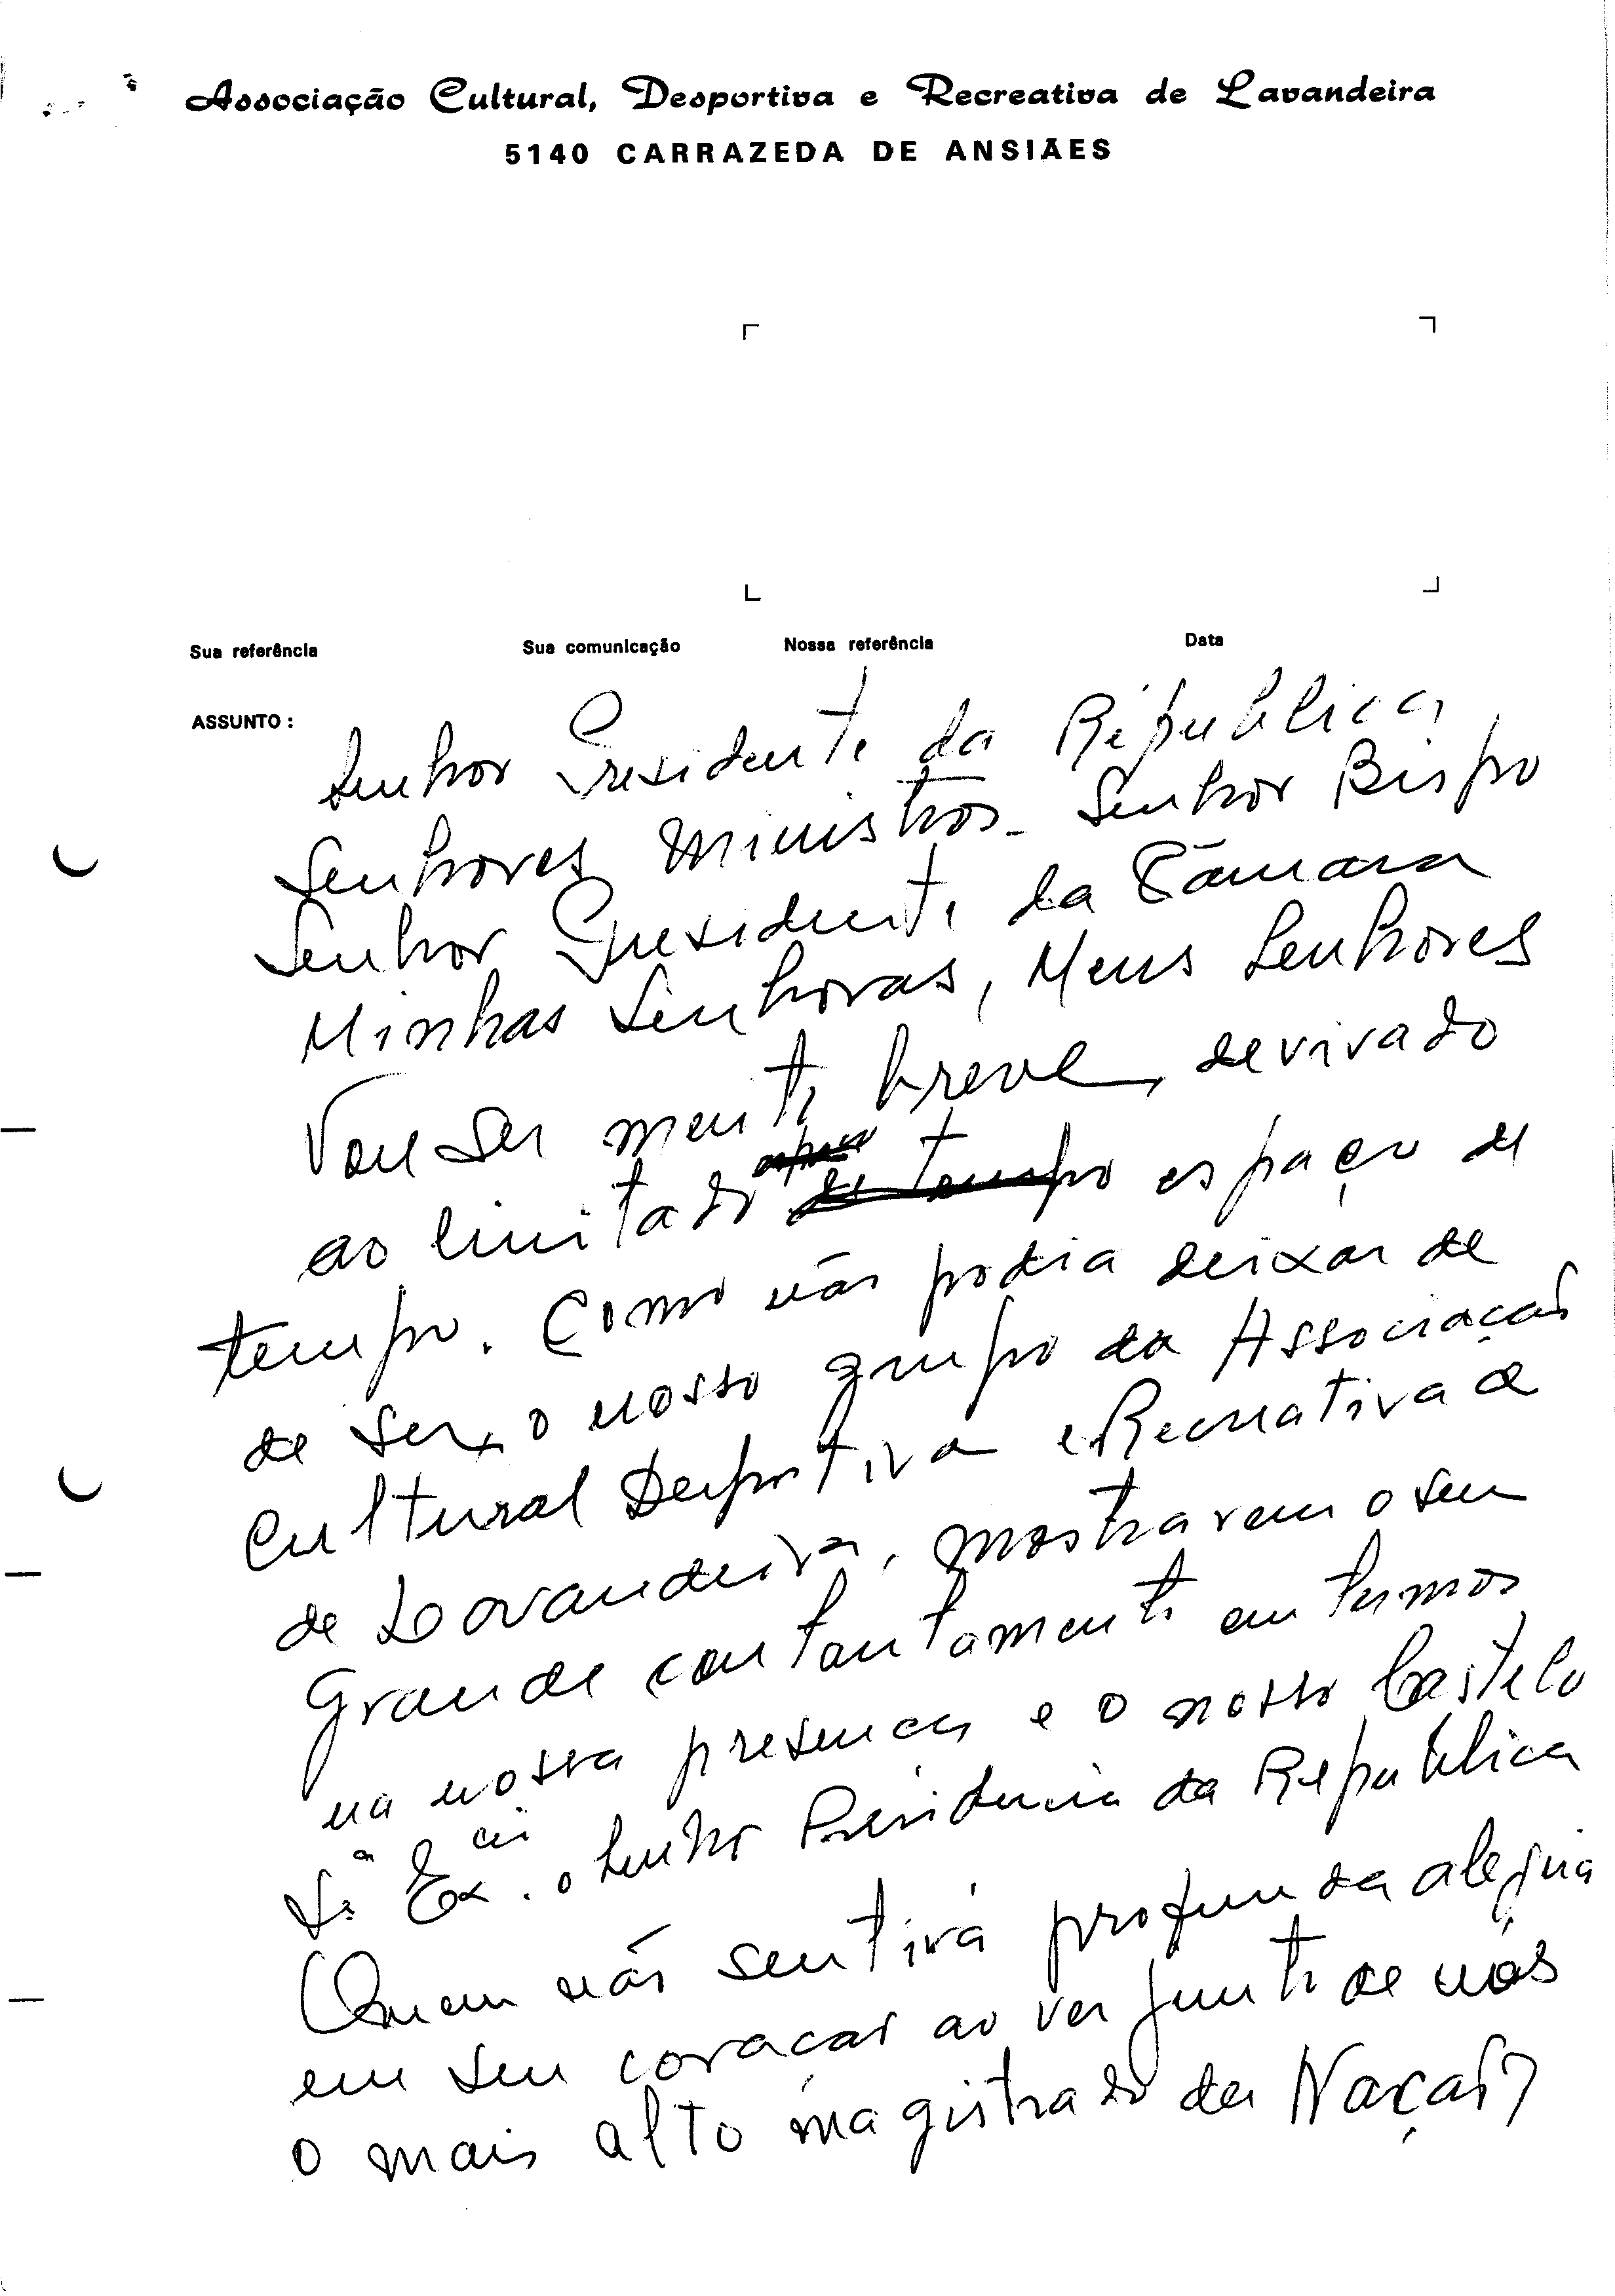 Associação Cultural, Desportiva e Recreativa de Lavandeira
5140 CARRAZEDA DE ANSIÃES
Sua referência Sua comunicação Nossa referência Data
ASSUNTO:
Senhor Presidente da República
Senhores Ministros - Senhor Bispo
Senhor Presidente da Câmara
Minhas Senhoras, Meus Senhores
Vou ser breve, devivado
ao limitado de tempo espaço de
tempo. Como não podia deixar de
de ser, o nosso grupo da Associação
Cultural Desportiva e Recreativa
de Lavandeira, mostrarem o seu
Grande em termos
na nossa presença e o nosso Castelo
Sª Exª. o Senhor da República
Quem não sentirá profunda alegria
em seu coração ao ver junto de nós
o mais alto magistrado da Nação?